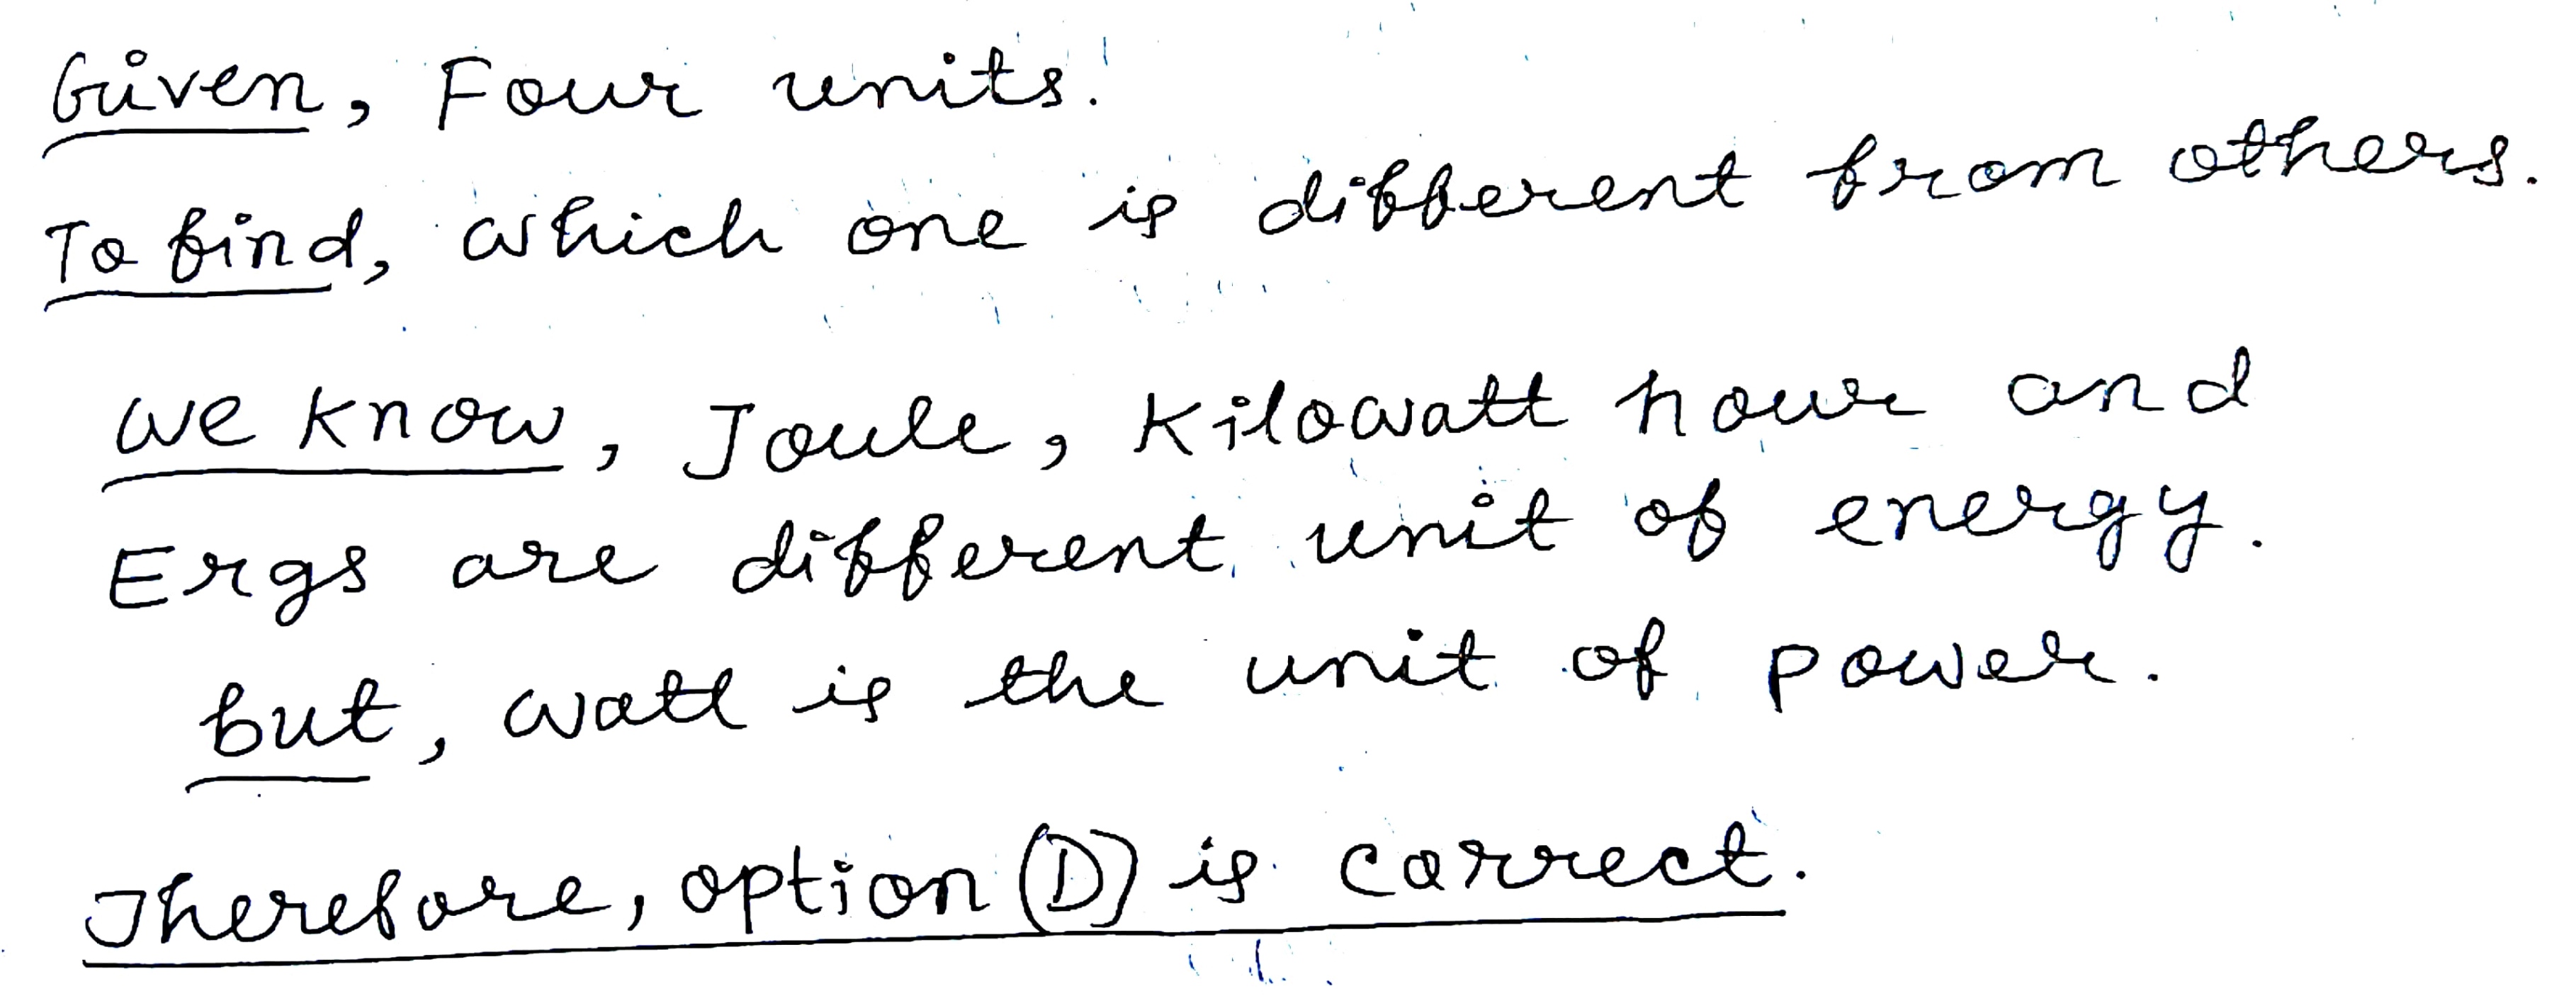 Given, Four units.
To find, which one is different from others.
we know, Joule, Kilowatt hour and
Ergs are different unit of energy.
but, watt is the unit of power.
Therefore, option (D) is correct.